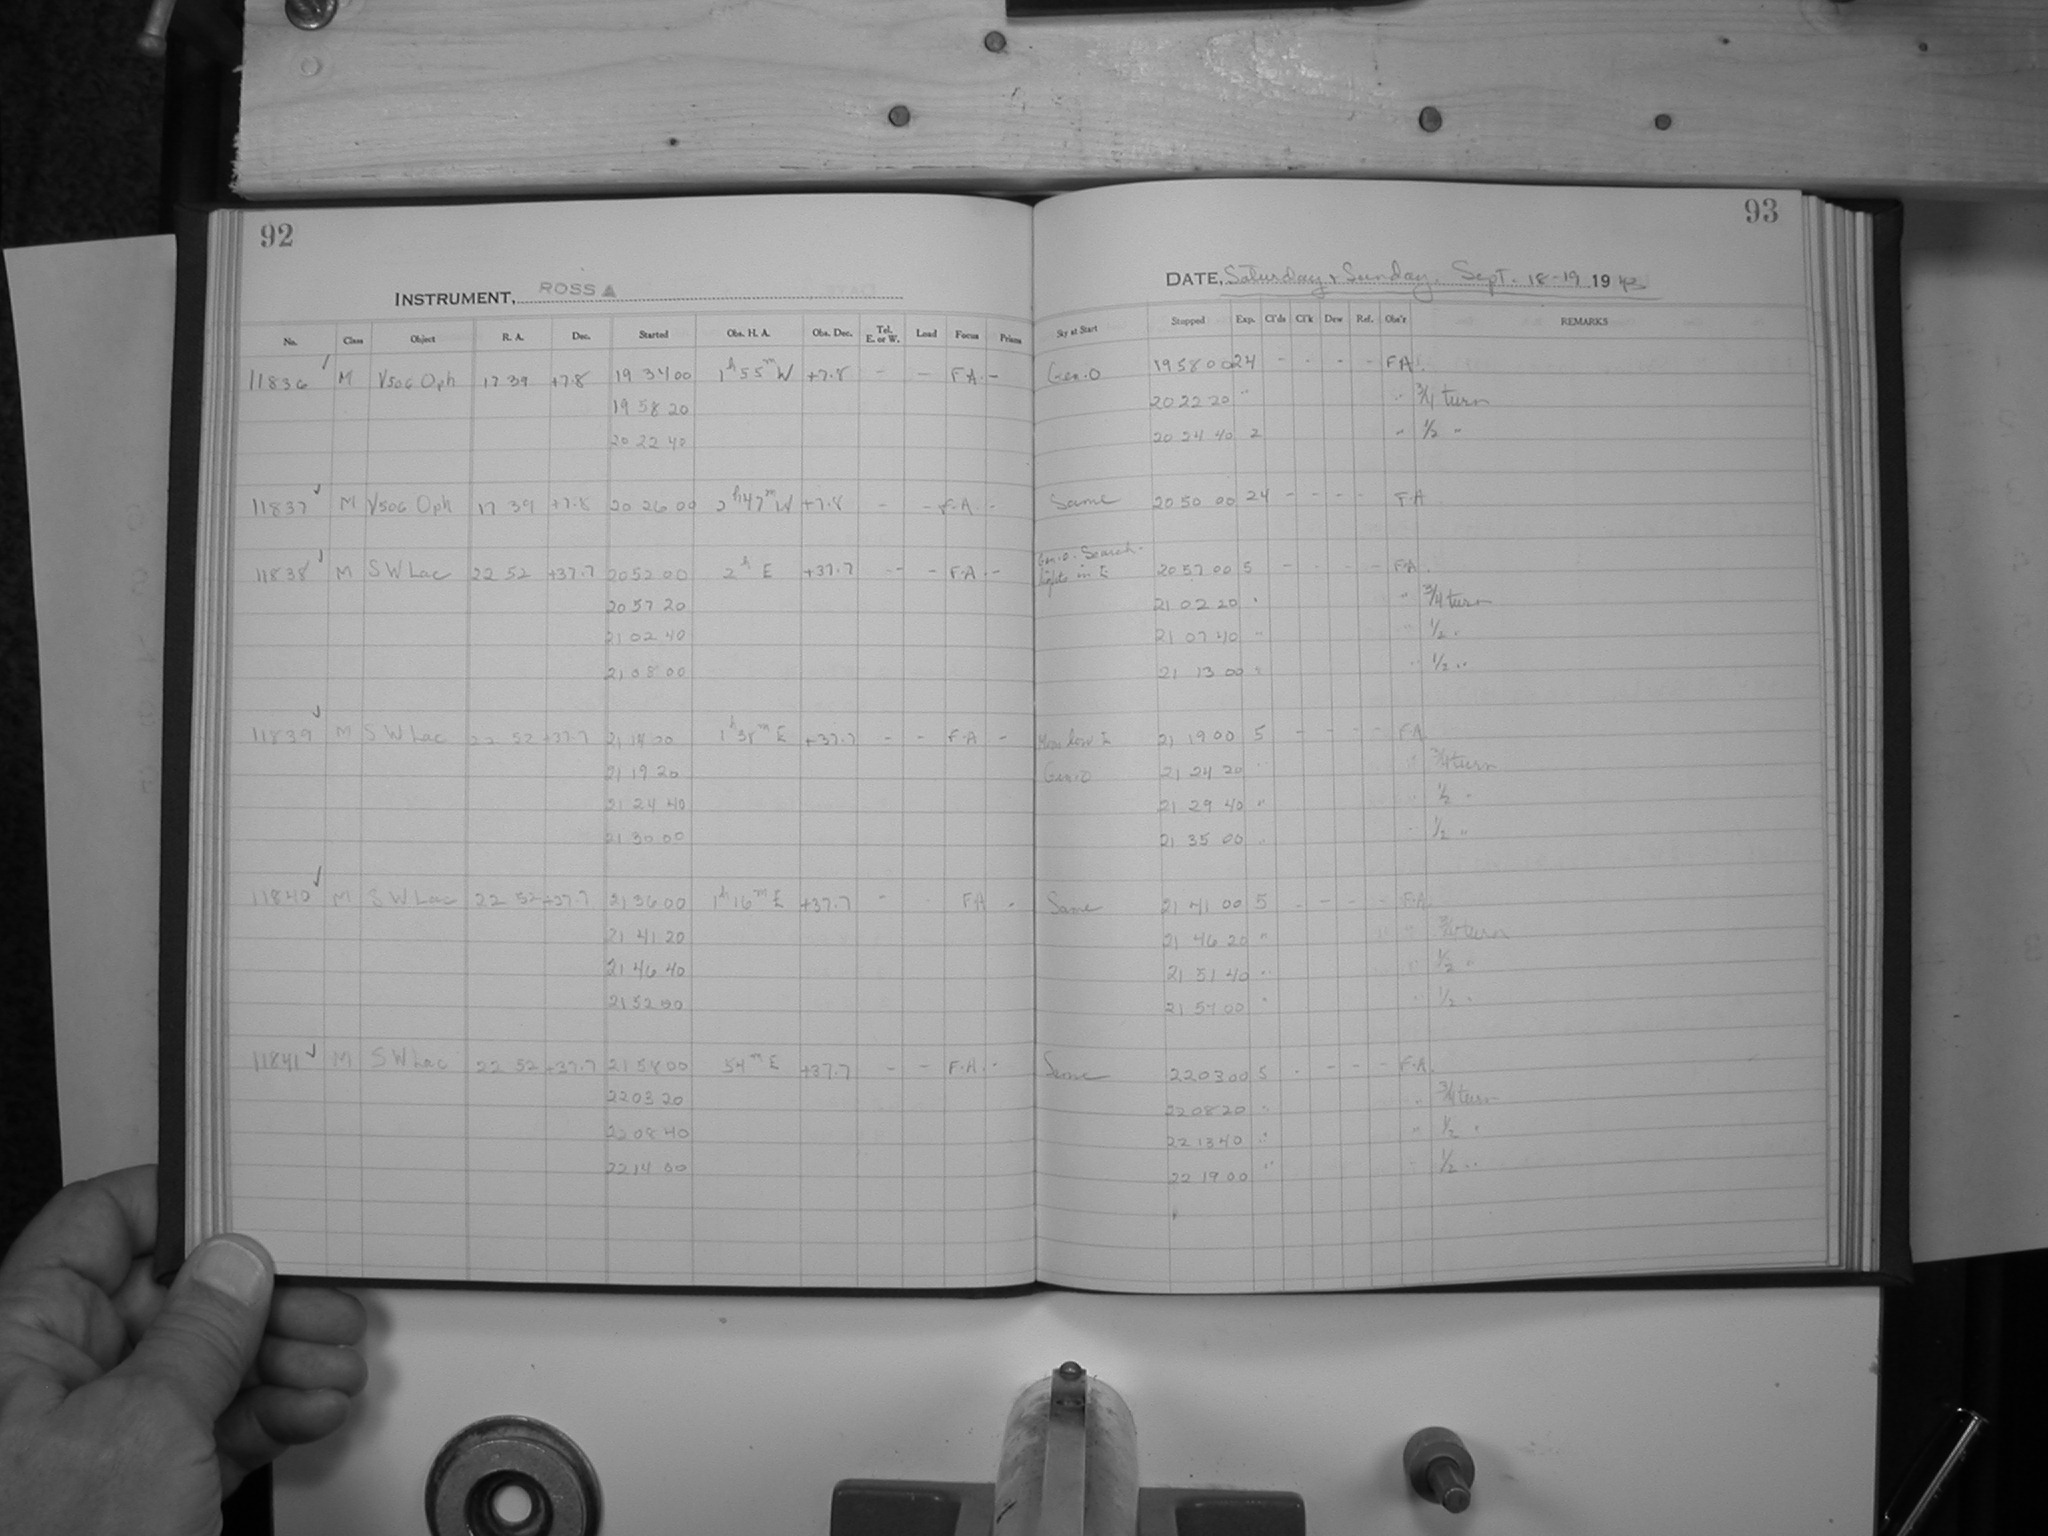 92
INSTRUMENT, ROSS A
No. Class Object R. A. Dec. Started Obs. H. A. Obs. Dec. Tel. E. or W. Load Focus Prisms
11836 ✓ M V506 Oph 17 39 +7.8 19 34 00 1h 55m W +7.8 - - F A. -
19 58 20
20 22 40
11837 ✓ M V506 Oph 17 39 +7.8 20 26 00 2h 47m W +7.8 - - F.A. -
11838 ✓ M S W Lac 22 52 +37.7 20 52 00 2h E +37.7 - - F.A. -
20 57 20
21 02 40
21 08 00
11839 ✓ M S W Lac 22 52 +37.7 21 14 00 1h 38m E +37.7 - - F.A -
21 19 20
21 24 40
21 30 00
11840 ✓ M S W Lac 22 52 +37.7 21 36 00 1h 16m E +37.7 - - F A -
21 41 20
21 46 40
21 52 00
11841 ✓ M S W Lac 22 52 +37.7 21 58 00 54m E +37.7 - - F.A. -
22 03 20
22 08 40
22 14 00
93
DATE, Saturday + Sunday, Sept. 18-19 19 43
Sky at Start Stopped Exp. Cl'ds Cl'k Dew Ref. Obs'r REMARKS
Gen. 0 19 58 00 24 - - - - F A.
20 22 20 " " 3/4 turn
20 24 40 2 " 1/2 "
Same 20 50 00 24 - - - - F.A
Gen. 0. Search-
lights in E 20 57 00 5 - - - - F.A.
21 02 20 " " 3/4 turn
21 07 40 " " 1/2 "
21 13 00 " " 1/2 "
low E 21 19 00 5 - - - - F.A.
Gen. 0 21 24 20 " " 3/4 turn
21 29 40 " " 1/2 "
21 35 00 " " 1/2 "
Same 21 41 00 5 - - - - F.A.
21 46 20 " " 3/4 turn
21 51 40 " " 1/2 "
21 57 00 " " 1/2 "
Same 22 03 00 5 - - - - F.A.
22 08 20 " " 3/4 turn
22 13 40 " " 1/2 "
22 19 00 " " 1/2 "